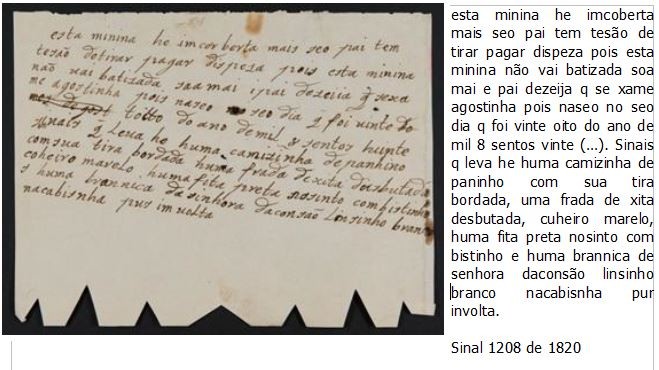 esta minina he imcorberta mais seo pai tem
tesão detirar pagar dispeza pois esta minina
não vai batizada sua mai ipai dezeija q sexa
me agostinha pois naseo no seo dia q foi vinte
toito do ano demil 8 sentos
sinais q Leva he huma camizinha depaninho
comsua tira bordada huma frada dexita desbutada
coheiro marelo, huma fita preta nosinto combistinho
huma brannica dasinhora daconsão Linsinho branco
nacabisnha pur imvolta
esta minina he imcoberta
mais seo pai tem tesão de
tirar pagar dispeza pois esta
minina não vai batizada soa
mai e pai dezeija q se xame
agostinha pois naseo no seo
dia q foi vinte oito do ano de
mil 8 sentos vinte (...). Sinais
q leva he huma camizinha de
paninho com sua tira
bordada, uma frada de xita
desbutada, cuheiro marelo,
huma fita preta nosinto com
bistinho e huma brannica de
senhora daconsão linsinho
branco nacabisnha pur
involta.
Sinal 1208 de 1820